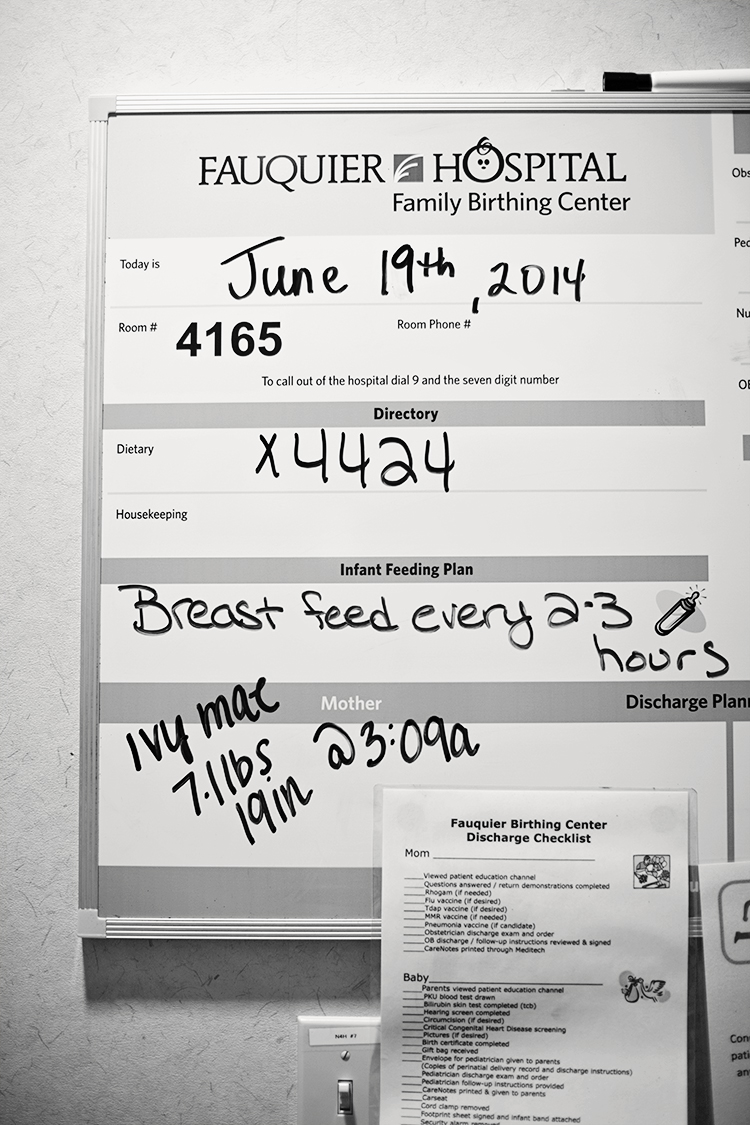 FAUQUIER HOSPITAL
Family Birthing Center
Today is June 19th, 2014
Room # 4165 Room Phone #
To call out of the hospital dial 9 and the seven digit number
Directory
Dietary x4424
Housekeeping
Infant Feeding Plan
Breast feed every 2-3
hours
Mother
Discharge Plan
Ivy mae
7.1lbs
19in
@3:09a
Obs
Ped
Nu
OB
Fauquier Birthing Center
Discharge Checklist
Mom
Viewed patient education channel
Questions answered / return demonstrations completed
Rhogam (if needed)
Flu vaccine (if desired)
Tdap vaccine (if desired)
MMR vaccine (if needed)
Pneumonia vaccine (if candidate)
Obstetrician discharge exam and order
OB discharge / follow-up instructions reviewed & signed
CareNotes printed through Meditech
Baby
Parents viewed patient education channel
PKU blood test drawn
Bilirubin skin test completed (tcb)
Hearing screen completed
Circumcision (if desired)
Critical Congenital Heart Disease screening
Pictures (if desired)
Birth certificate completed
Gift bag received
Envelope for pediatrician given to parents
(Copies of perinatal delivery record and discharge instructions)
Pediatrician discharge exam and order
Pediatrician follow-up instructions provided
CareNotes printed & given to parents
Carseat
Cord clamp removed
Footprint sheet signed and infant band attached
Security alarm removed
N4H #7
Con
pati
an